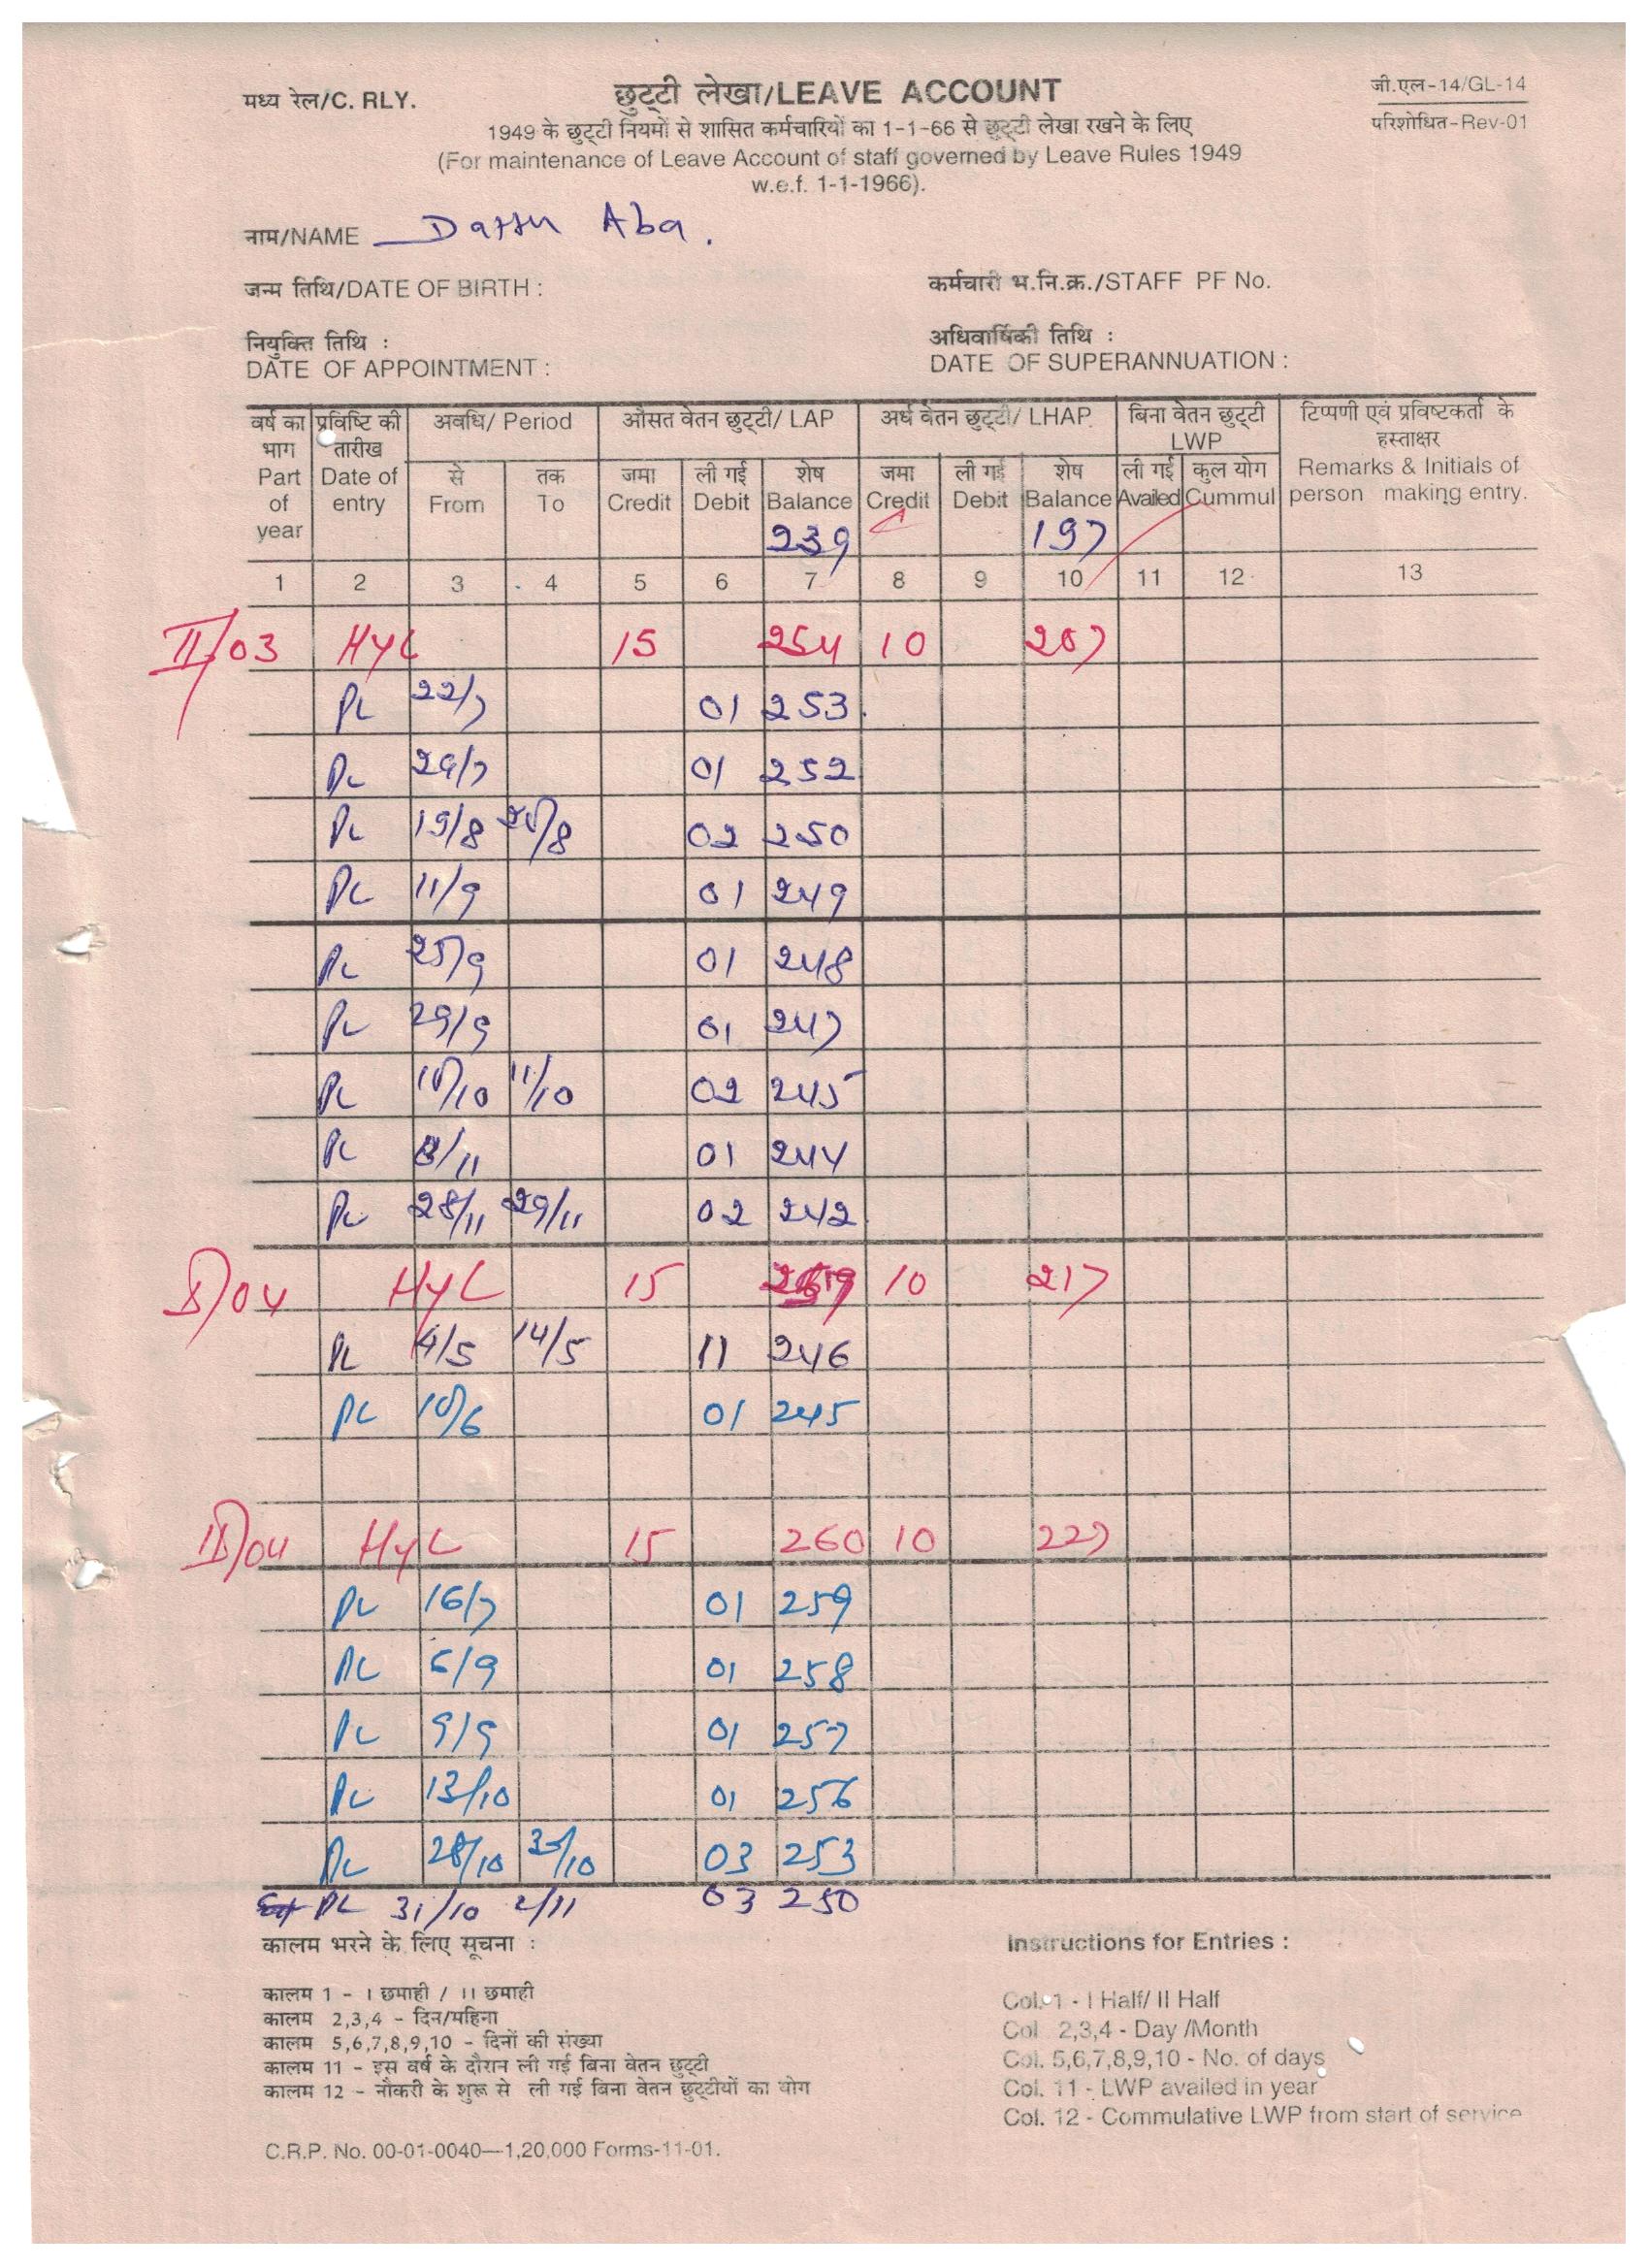 मध्य रेल/C. RLY.
छुट्टी लेखा/LEAVE ACCOUNT
जी.एल-14/GL-14
परिशोधित-Rev-01
1949 के छुट्टी नियमों से शासित कर्मचारियों का 1-1-66 से छुट्टी लेखा रखने के लिए
(For maintenance of Leave Account of staff governed by Leave Rules 1949
w.e.f. 1-1-1966).
नाम/NAME Dattu Aba.
जन्म तिथि/DATE OF BIRTH :
कर्मचारी भ.नि.क्र./STAFF PF No.
नियुक्ति तिथि :
DATE OF APPOINTMENT :
अधिवार्षिकी तिथि :
DATE OF SUPERANNUATION :
वर्ष का भाग Part of year
प्रविष्टि की तारीख Date of entry
अवधि/ Period
से From
तक To
औसत वेतन छुट्टी/ LAP
जमा Credit
ली गई Debit
शेष Balance 239
अर्ध वेतन छुट्टी/ LHAP
जमा Credit
ली गई Debit
शेष Balance 197
बिना वेतन छुट्टी LWP
ली गई Availed
कुल योग Cummul
टिप्पणी एवं प्रविष्टकर्ता के हस्ताक्षर
Remarks & Initials of person making entry.
1 2 3 4 5 6 7 8 9 10 11 12 13
II/03 HYL 15 254 10 207
PL 22/7 01 253
PL 29/7 01 252
PL 19/8 20/8 02 250
PL 11/9 01 249
PL 25/9 01 248
PL 29/9 01 247
PL 10/10 11/10 02 245
PL 8/11 01 244
PL 28/11 29/11 02 242
I/04 HYL 15 10 217
PL 4/5 14/5 11 246
PL 10/6 01 245
II/04 HYL 15 260 10 227
PL 16/7 01 259
PL 6/9 01 258
PL 9/9 01 257
PL 13/10 01 256
PL 28/10 30/10 03 253
PL 31/10 2/11 03 250
कालम भरने के लिए सूचना :
कालम 1 - I छमाही / II छमाही
कालम 2,3,4 - दिन/महिना
कालम 5,6,7,8,9,10 - दिनों की संख्या
कालम 11 - इस वर्ष के दौरान ली गई बिना वेतन छुट्टी
कालम 12 - नौकरी के शुरू से ली गई बिना वेतन छुट्टीयों का योग
Instructions for Entries :
Col. 1 - I Half/ II Half
Col 2,3,4 - Day /Month
Col. 5,6,7,8,9,10 - No. of days
Col. 11 - LWP availed in year
Col. 12 - Commulative LWP from start of service
C.R.P. No. 00-01-0040—1,20,000 Forms-11-01.